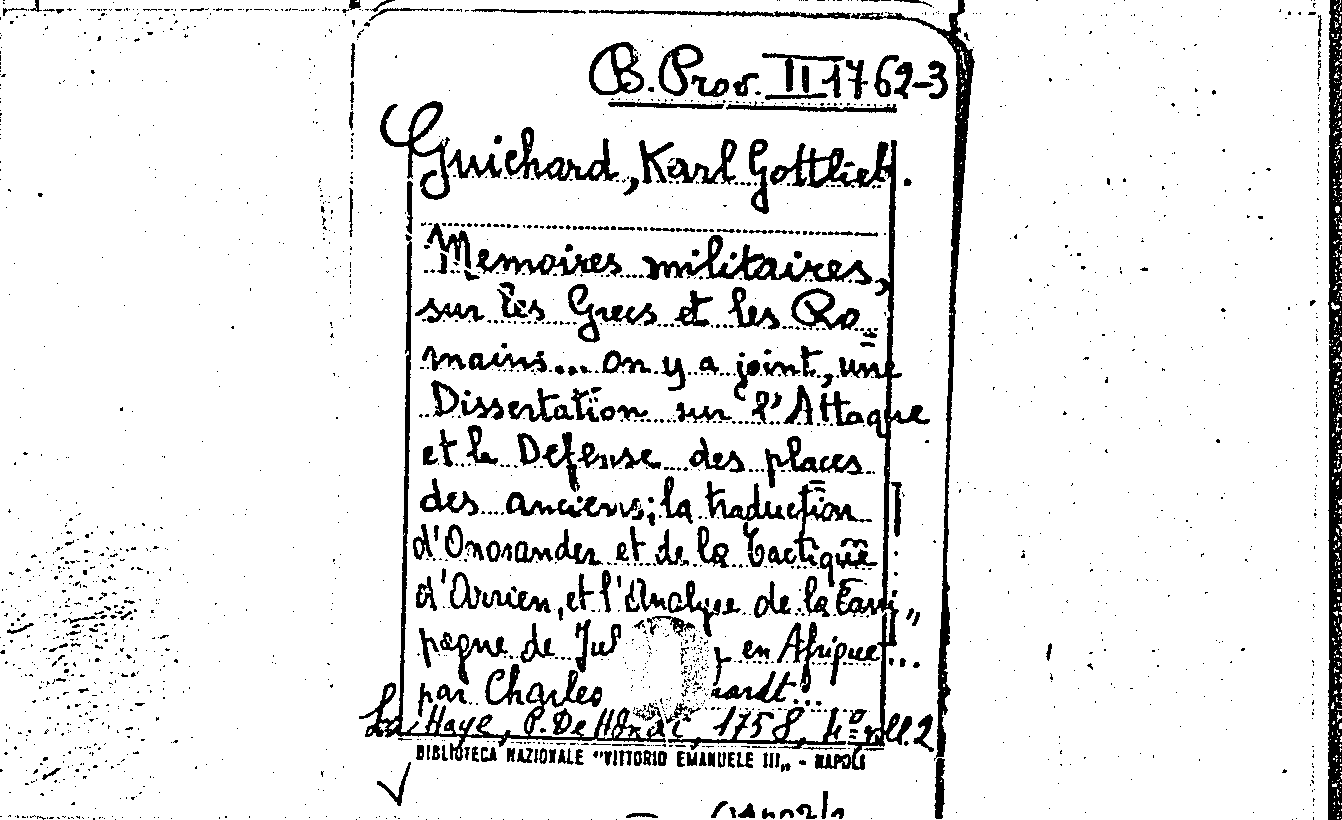 B. Prov. II 1762-3
Guichard, Karl Gottlieb.
Memoires militaires,
sur les Grecs et les Ro=
mains... on y a joint, une
Dissertation sur l'Attaque
et la Defense des places
des anciens; la traduction
d'Onosander et de la Tactique
d'Arrien, et l'Analyse de la Cam„
pagne de Jul en Afrique...
par Charles hardt...
La Haye, P. De Hondt, 1758, 4º voll. 2
BIBLIOTECA NAZIONALE "VITTORIO EMANUELE III„ - NAPOLI